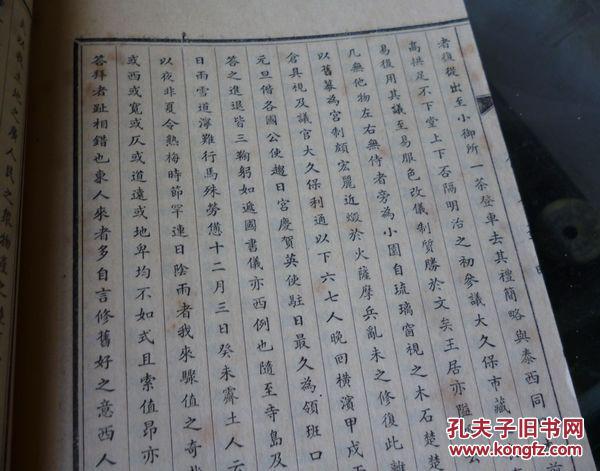 者復從出至小御所一茶登車去其禮簡略與泰西同
高拱足不下堂上下否隔明治之初參議大久保市藏
易後用其議至易服色改儀制質勝於文矣王居亦隘
几無他物左右無侍者旁為小園自琉璃窗視之木石楚楚
以舊幕為宮制頗宏麗近燬於火薩摩兵亂未之修復此離
倉具視及議官大久保利通以下六七人晚回橫濱甲戌
元旦偕各國公使趨日宮慶賀英使駐日最久為領班口
答之進退皆三鞠躬如遞國書儀亦西例也隨至寺島及
日雨雪道濘難行馬殊勞憊十二月三日癸未霽土人云
以夜非夏令熱梅時節罕連日陰雨者我來驟值之奇
或西或寬或仄或道遠或地卑均不如式且索值昂亦
答拜者趾相錯也東人來者多自言修舊好之意西人
地之廣人民之眾物產之
孔夫子旧书网
www.kongfz.com